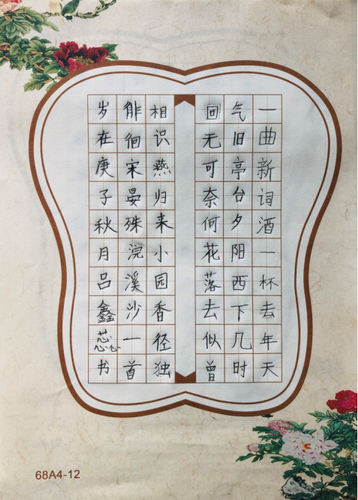 一曲新词酒一杯去年天
气旧亭台夕阳西下几时
回无可奈何花落去似曾
相识燕归来小园香径独
徘徊宋晏殊浣溪沙一首
岁在庚子秋月吕鑫蕊书
68A4-12